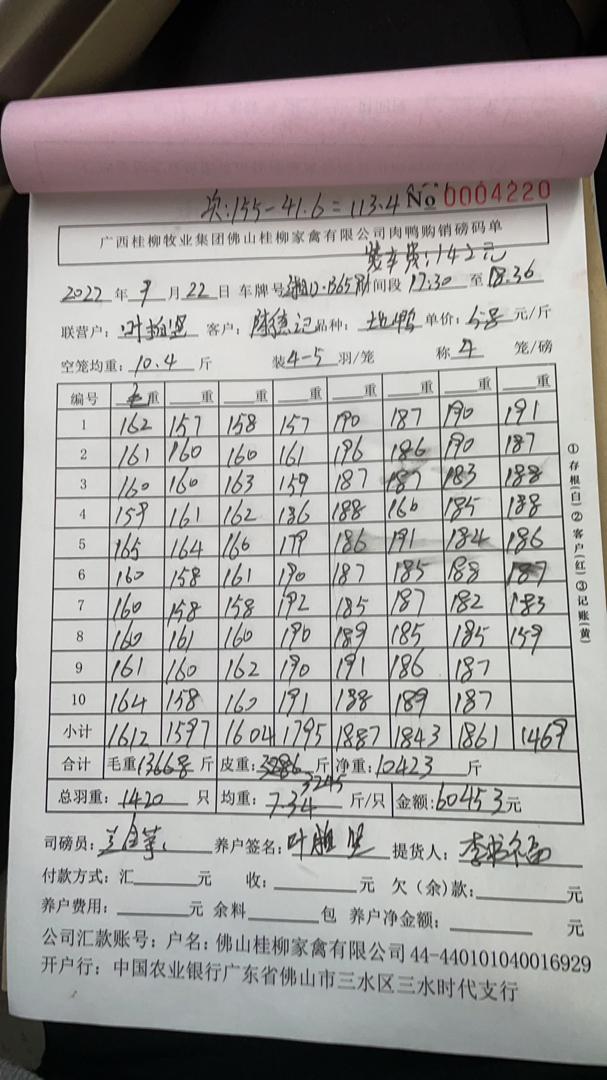 次:155-41.6=113.4 No 0004220
广西桂柳牧业集团佛山桂柳家禽有限公司肉鸭购销磅码单
装车费:142元
2022年9月22日 车牌号 时间段17:30至18:36
联营户: 客户: 品种: 单价:5.8元/斤
空笼均重:10.4斤 装4-5羽/笼 称4笼/磅
编号 毛重 重 重 重 重 重 重 重
1 162 157 158 157 190 187 190 191
2 161 160 160 161 196 186 190 187
3 160 160 163 159 187 187 183 188
4 159 161 162 186 188 160 185 188
5 165 164 160 179 186 191 184 186
6 160 158 161 190 187 185 188 187
7 160 158 158 192 185 187 182 183
8 160 161 160 190 189 185 185 159
9 161 160 162 190 191 186 187
10 164 158 160 191 188 189 187
小计 1612 1597 1604 1795 1887 1843 1861 1469
合计 毛重13668斤 皮重:3286斤 净重:10423斤
3245
总羽重:1420只 均重:7.34斤/只 金额:60453元
司磅员: 养户签名: 提货人:
付款方式:汇 元 收: 元 欠(余)款: 元
养户费用: 元 余料 包 养户净金额: 元
公司汇款账号:户名:佛山桂柳家禽有限公司44-440101040016929
开户行:中国农业银行广东省佛山市三水区三水时代支行
①存根(白)②客户(红)③记账(黄)